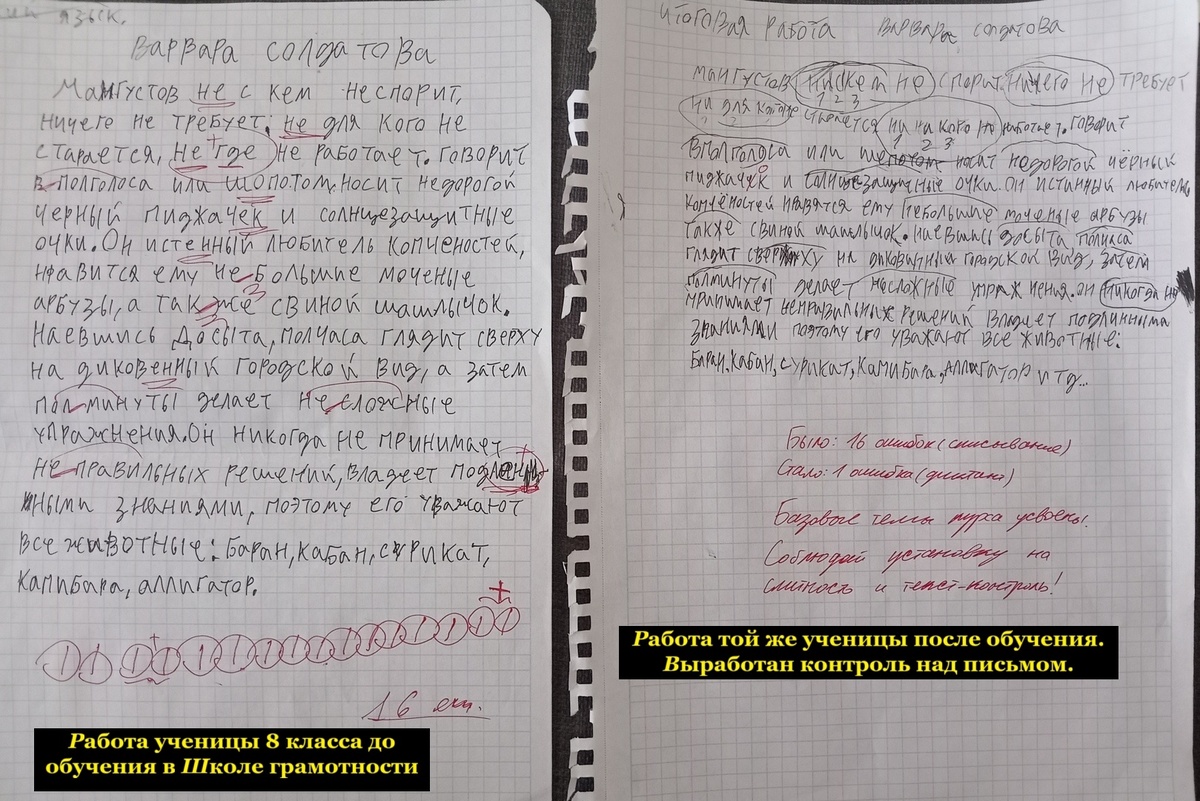 язык.
Варвара Солдатова
Мангустов не с кем неспорит,
ничего не требует, не для кого не
старается, не где не работает. Говорит
в полголоса или шопотом. Носит недорогой
черный пиджачек и солнцезащитные
очки. Он истенный любитель копченостей,
нравится ему не большие моченые
арбузы, а так же свиной шашлычок.
Наевшись досыта, полчаса глядит сверху
на диковенный городской вид, а затем
пол минуты делает не сложные
упражнения. Он никогда не принимает
не правильных решений, владеет
ными знаниями, поэтому его уважают
все животные: баран, кабан, сурикат,
капибара, аллигатор.
1 1 1 1 1 1 1 1 1 1 1 1 1 1 1 1
16
Работа ученицы 8 класса до
обучения в Школе грамотности
Итоговая работа Варвара Солдатова
Мангустов ни с кем не спорит ничего не требует
1 2 3
ни для кого не старается ни на кого не работает. Говорит
1 2 3
вполголоса или шепотом носит недорогой чёрный
пиджачок и солнцезащитные очки. Он истинный любитель
копчёностей нравятся ему небольшие моченые арбузы
также свиной шашлычок. Наевшись досыта полчаса
глядит сверху на диковинный городской вид, затем
полминуты делает несложные упражнения. Он никогда не
принимает неправильных решений владеет подлинными
знаниями поэтому его уважают все животные:
Баран, кабан, сурикат, капибара, аллигатор и тд...
Было: 16 ошибок (списывание)
Стало: 1 ошибка (диктант)
Базовые темы курса усвоены!
Соблюдай установку на
слитность и текст-контроль!
Работа той же ученицы после обучения.
Выработан контроль над письмом.